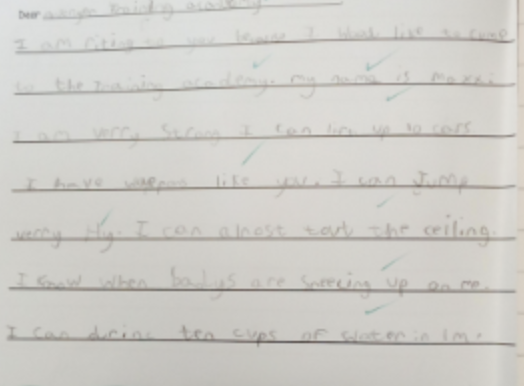 Dear avenger training academy
I am riting to you because I wout like to come
to the training academy. my name is
I am verry strong I can lift up to cars
I have wappons like you. I can Jump
verry Hy. I can alnost tout the ceiling.
I know when badys are sneecing up on me.
I can drinc ten cups of water in 1m.